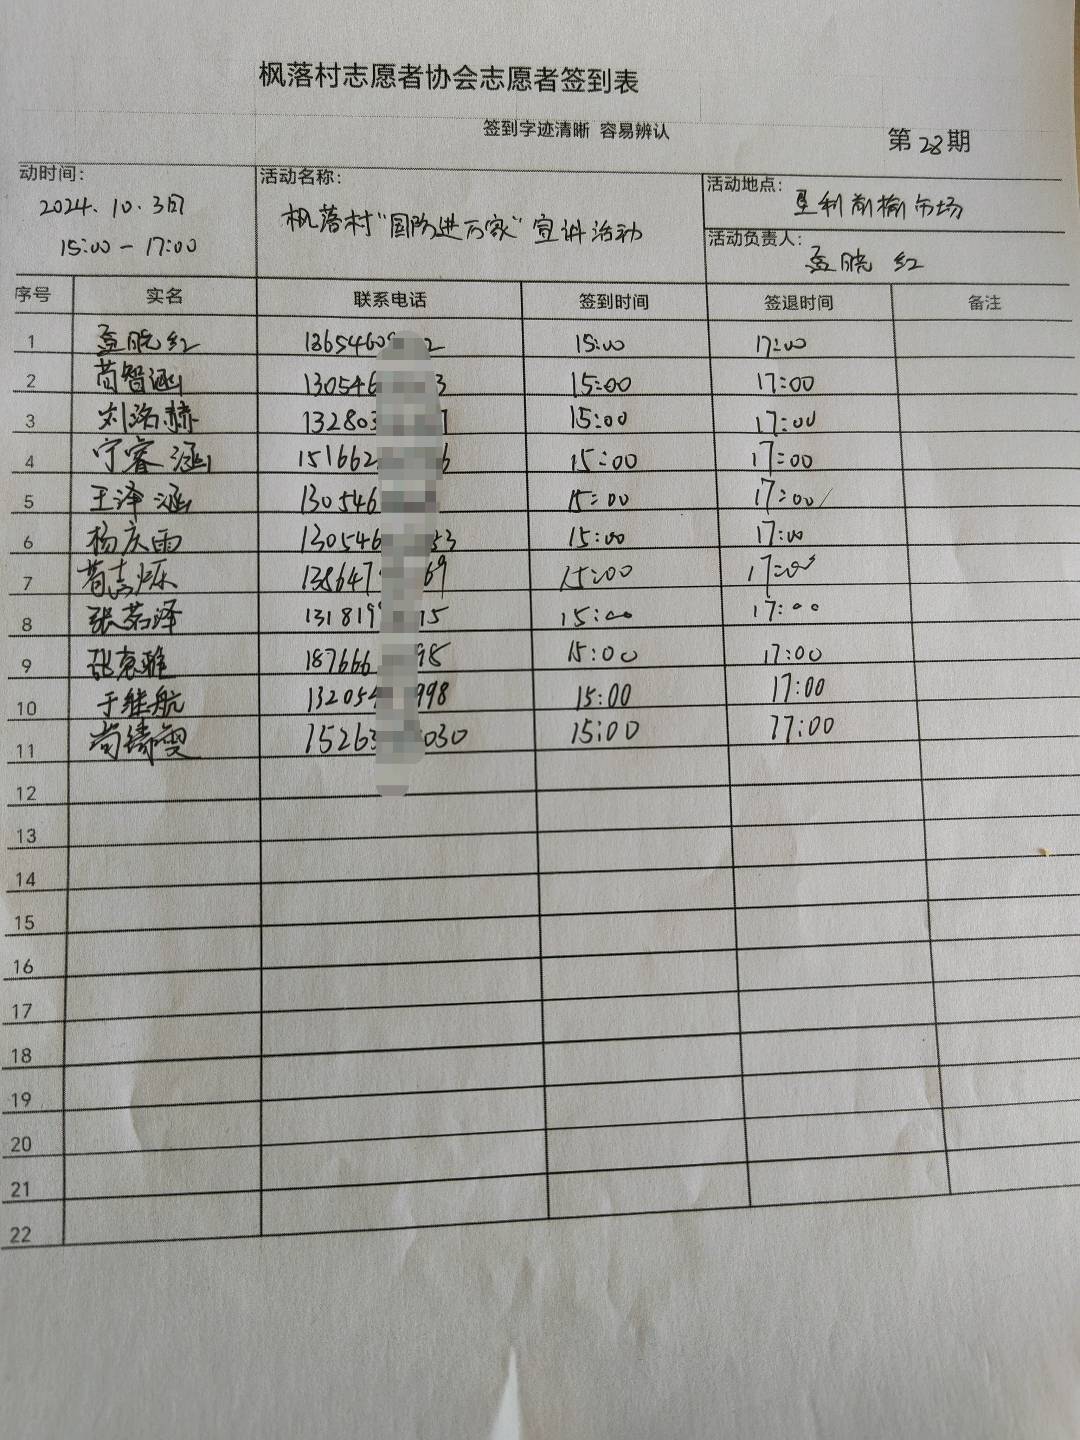 枫落村志愿者协会志愿者签到表
签到字迹清晰 容易辨认
第 28 期
动时间： 活动名称： 活动地点：
2024.10.3日 枫落村“国防进万家”宣讲活动 垦利 市场
15:00－17:00 活动负责人：
孟晓红
序号 实名 联系电话 签到时间 签退时间 备注
1 孟晓红 1865460 2 15:00 17:00
2 苘智涵 130546 3 15:00 17:00
3 刘洺赫 13280 15:00 17:00
4 宁睿涵 151662 6 15:00 17:00
5 王泽涵 130546 15:00 17:00
6 杨庆雨 130546 53 15:00 17:00
7 138647 69 15:00 17:00
8 张若泽 131819 15 15:00 17:00
9 张惠雅 187666 98 15:00 17:00
10 于继航 132054 998 15:00 17:00
11 尚 15263 030 15:00 17:00
12
13
14
15
16
17
18
19
20
21
22